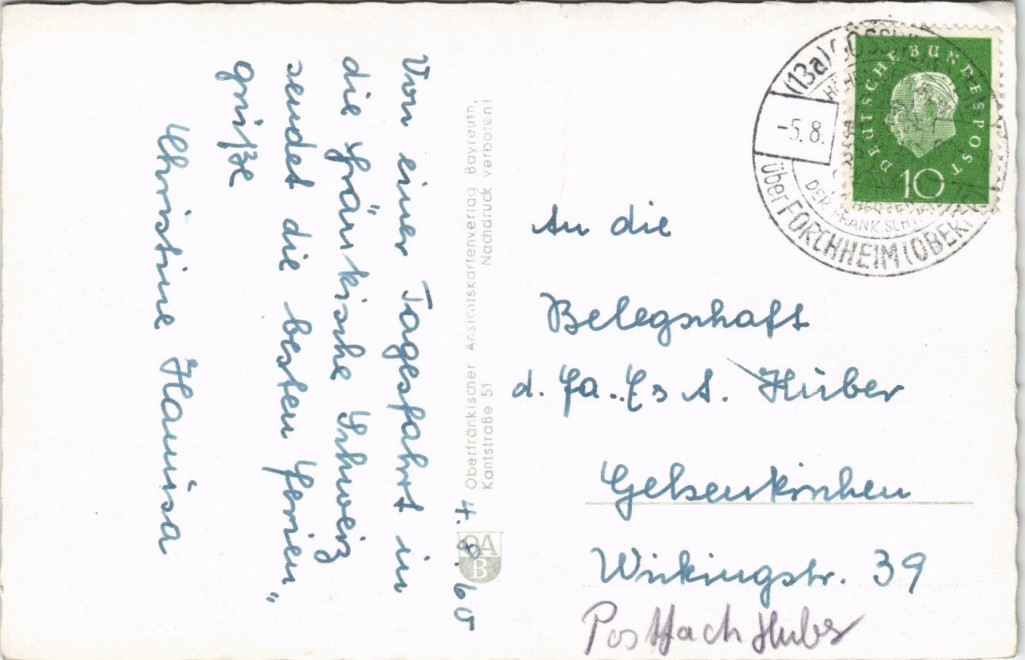 4. 8. 60
Von einer Tagesfahrt in
die fränkische Schweiz
sendet die besten Ferien„
grüße
Christine Hanisa
Oberfränkischer Ansichtskartenverlag Bayreuth,
Kantstraße 51 Nachdruck verboten!
OA
B
(13a) GÖSSW
-5.8.
DER FRÄNK. SCHW
über FORCHHEIM (OBERF
DEUTSCHE BUNDESPOST
10
An die
Belegschaft
d. Fa. A. Huber
Gelsenkirchen
Wickingstr. 39
Postfach Huber